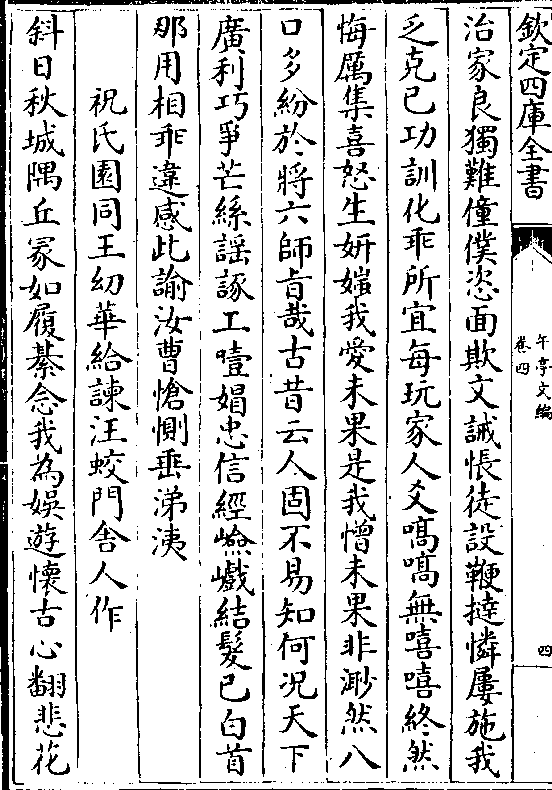 欽定四庫全書
午亭文編
卷四
四
治家良獨難僮僕恣面欺文誡悵徒設鞭撻憐屢施我
乏克已功訓化乖所宜每玩家人爻嗃嗃無嘻嘻終然
悔厲集喜怒生妍媸我愛未果是我憎未果非渺然八
口多紛於將六師旨哉古昔云人固不易知何况天下
廣利巧爭芒絲謡諑工噎媢忠信經嶮巇結髮已白首
那用相乖違感此諭汝曹愴惻垂涕洟
祝氏園同王㓜華給諫汪蛟門舍人作
斜日秋城隅丘冢如履綦念我為娛遊懷古心翻悲花